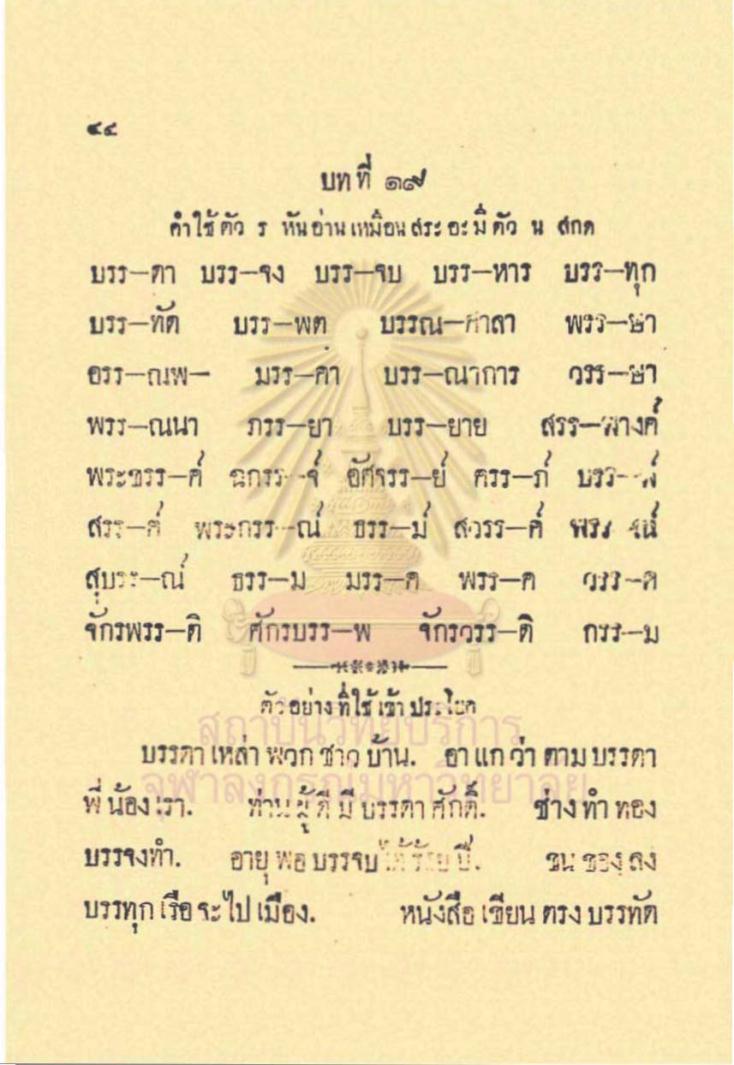 ๔๔
บทที่ ๑๙
คำใช้ตัว ร หันอ่านเหมือนสระอะมีตัว น สกด
บรร—ดา บรร—จง บรร—จบ บรร—หาร บรร—ทุก
บรร—ทัด บรร—พต บรรณ—ศาลา พรร—ษา
อรร—ณพ— มรร—คา บรร—ณาการ วรร—ษา
พรร—ณนา ภรร—ยา บรร—ยาย สรร—พางค์
พระขรร—ค์ ฉกรร—จ์ อัศจรร—ย์ ครร—ภ์
สรร—ค์ พระกรร—ณ์ ธรร—ม์ สวรร—ค์
สุบรร—ณ์ ธรร—ม มรร—ค พรร—ค วรร—ค
จักรพรร—ดิ ศักรบรร—พ จักรวรร—ดิ กรร—ม
ตัวอย่างที่ใช้เข้าประโยค
บรรดาเหล่าพวกชาวบ้าน. อาแกว่าตามบรรดา
พี่น้องเรา. ท่านผู้ดีมีบรรดาศักดิ์. ช่างทำทอง
บรรจงทำ. อายุพอบรรจบได้ร้อยปี. ขนของลง
บรรทุกเรือจะไปเมือง. หนังสือเขียนตรงบรรทัด
สถาบันวิทยบริการ
จุฬาลงกรณ์มหาวิทยาลัย